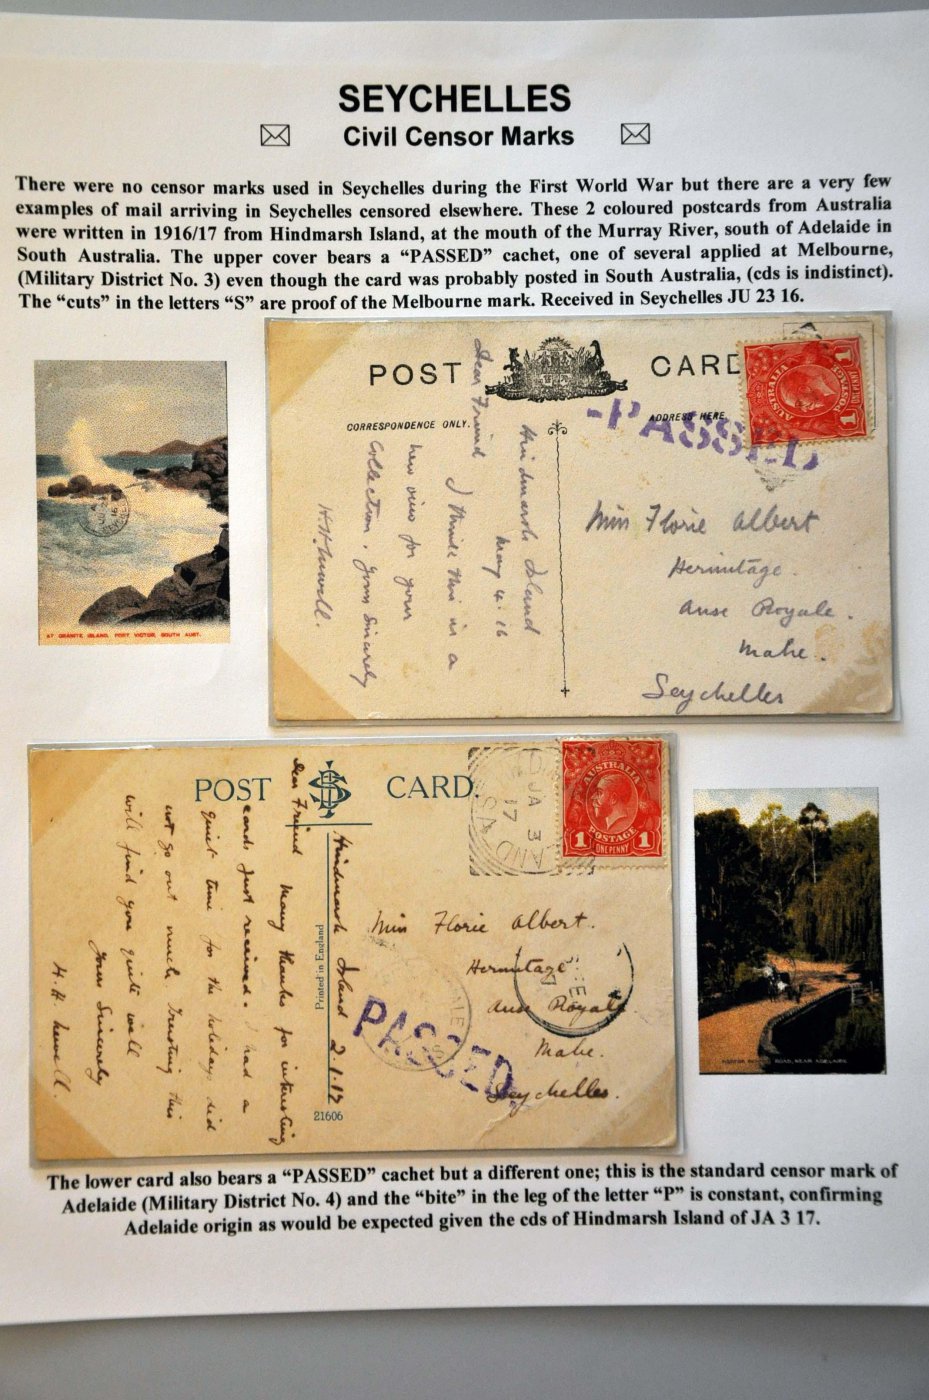 SEYCHELLES
Civil Censor Marks
There were no censor marks used in Seychelles during the First World War but there are a very few
examples of mail arriving in Seychelles censored elsewhere. These 2 coloured postcards from Australia
were written in 1916/17 from Hindmarsh Island, at the mouth of the Murray River, south of Adelaide in
South Australia. The upper cover bears a “PASSED” cachet, one of several applied at Melbourne,
(Military District No. 3) even though the card was probably posted in South Australia, (cds is indistinct).
The “cuts” in the letters “S” are proof of the Melbourne mark. Received in Seychelles JU 23 16.
AT GRANITE ISLAND, PORT VICTOR, SOUTH AUST.
POST CARD
CORRESPONDENCE ONLY.
ADDRESS HERE
PASSED
AUSTRALIA
POSTAGE
1 1
ONE PENNY
Hindmarsh Island
May 4. 16
Dear Friend
I think this is a
new view for your
Collection. Yours Sincerely
Miss Florie Albert
Hermitage.
Anse Royale.
Mahe.
Seychelles
POST CARD.
Printed in England
21606
JA 3
17
S.A
AUSTRALIA
POSTAGE
1 1
ONE PENNY
Hindmarsh Island 2.1.17
Dear Friend
Many thanks for interesting
cards just received. I had a
quiet time for the holidays did
not go out much. Trusting this
will find you quite well
Yours Sincerely
Miss Florie Albert.
Hermitage
Anse Royale
Mahe.
Seychelles.
PASSED.
ROAD, NEAR ADELAIDE
The lower card also bears a “PASSED” cachet but a different one; this is the standard censor mark of
Adelaide (Military District No. 4) and the “bite” in the leg of the letter “P” is constant, confirming
Adelaide origin as would be expected given the cds of Hindmarsh Island of JA 3 17.